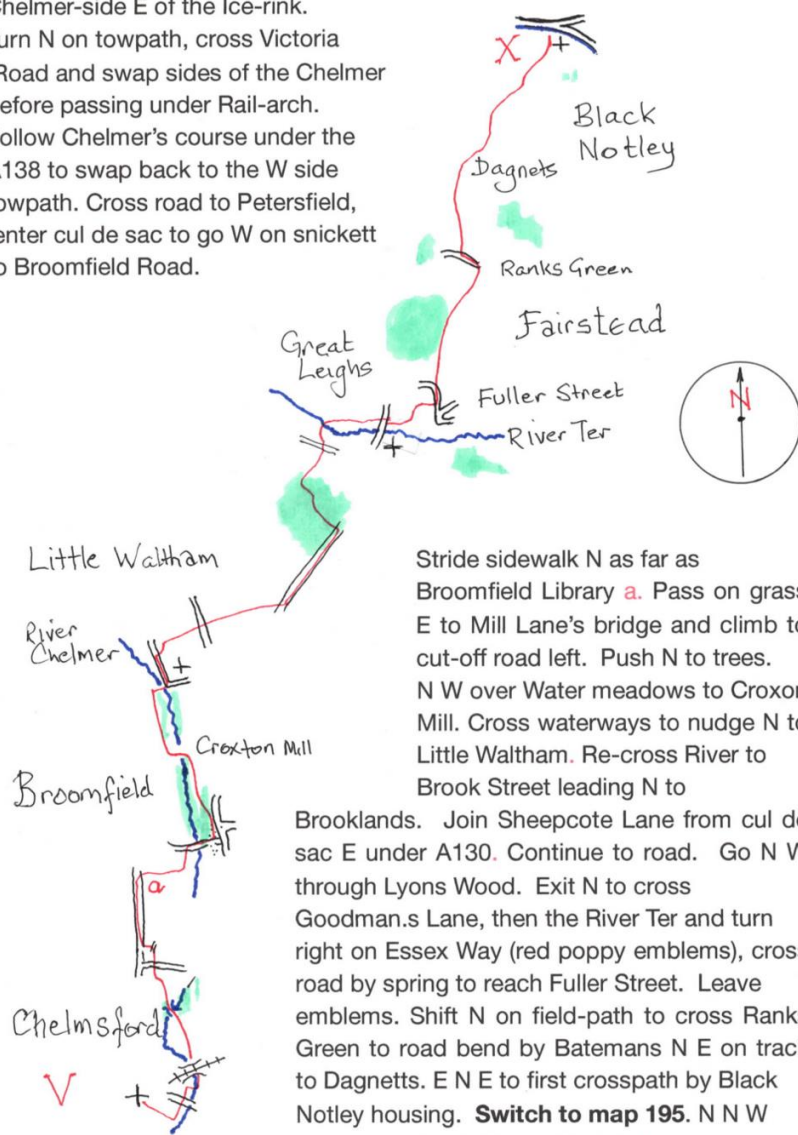 Chelmer-side E of the Ice-rink.
urn N on towpath, cross Victoria
Road and swap sides of the Chelmer
efore passing under Rail-arch.
ollow Chelmer's course under the
138 to swap back to the W side
owpath. Cross road to Petersfield,
enter cul de sac to go W on snickett
o Broomfield Road.
X
Black
Notley
Dagnets
Ranks Green
Fairstead
Great
Leighs
Fuller Street
River Ter
N
Little Waltham
River
Chelmer
Croxton Mill
Broomfield
a
Chelmsford
V
Stride sidewalk N as far as
Broomfield Library a. Pass on grass
E to Mill Lane's bridge and climb to
cut-off road left. Push N to trees.
N W over Water meadows to Croxon
Mill. Cross waterways to nudge N to
Little Waltham. Re-cross River to
Brook Street leading N to
Brooklands. Join Sheepcote Lane from cul de
sac E under A130. Continue to road. Go N W
through Lyons Wood. Exit N to cross
Goodman.s Lane, then the River Ter and turn
right on Essex Way (red poppy emblems), cros
road by spring to reach Fuller Street. Leave
emblems. Shift N on field-path to cross Rank
Green to road bend by Batemans N E on trac
to Dagnetts. E N E to first crosspath by Black
Notley housing. Switch to map 195. N N W